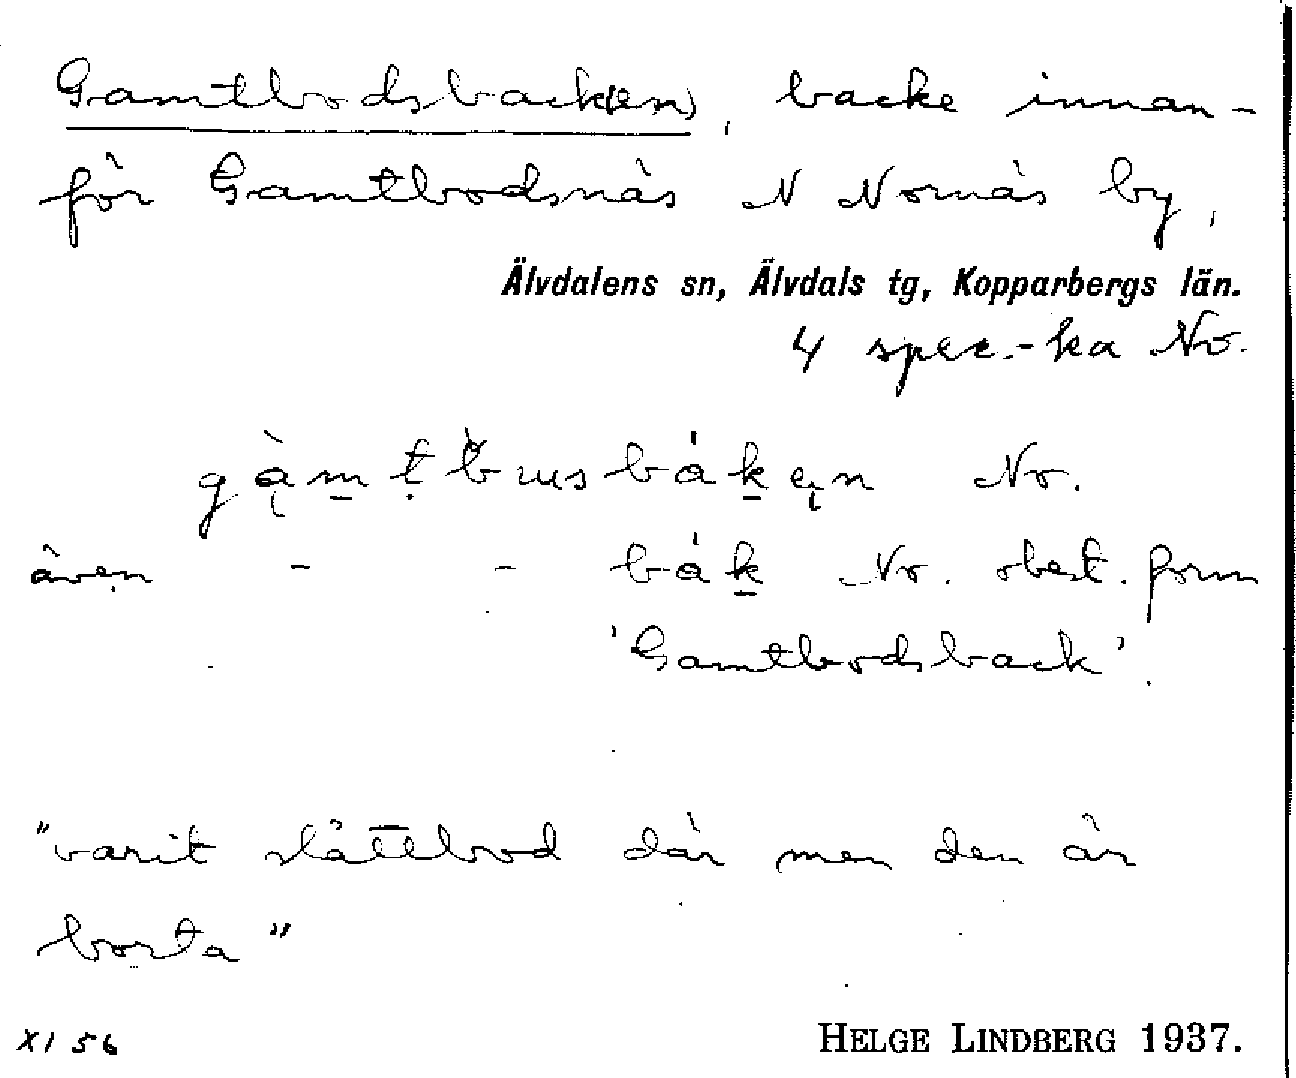 Gamtbodsback(en), backe innan-
för Gamtbodsnäs N Nornäs by,
Älvdalens sn, Älvdals tg, Kopparbergs län.
4 spec.-ka No.
No.
även - - båk No. obest. form
'Gamtbodsback'.
"varit slåttbod där men den är
borta"
XI 56 HELGE LINDBERG 1937.